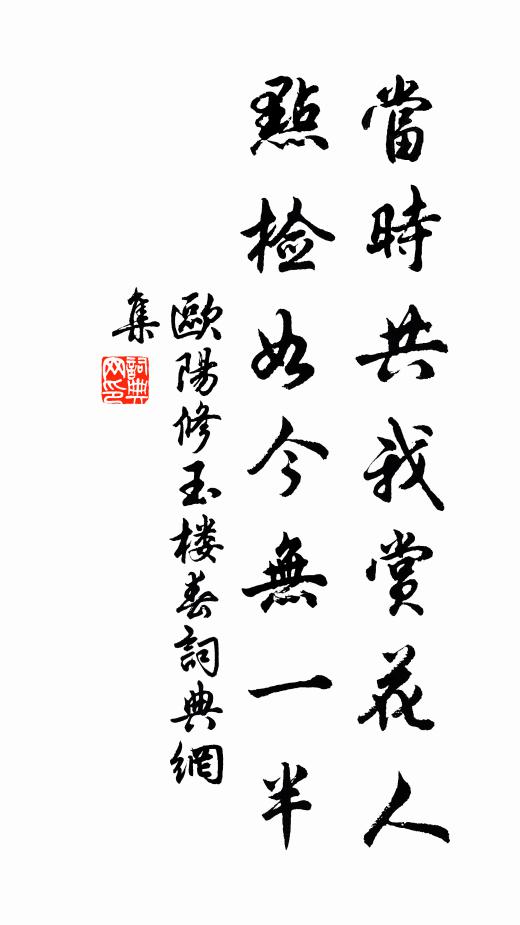 當時共我賞花人
點檢如今無一半
歐陽修玉楼春詞典網
集
詞典网印